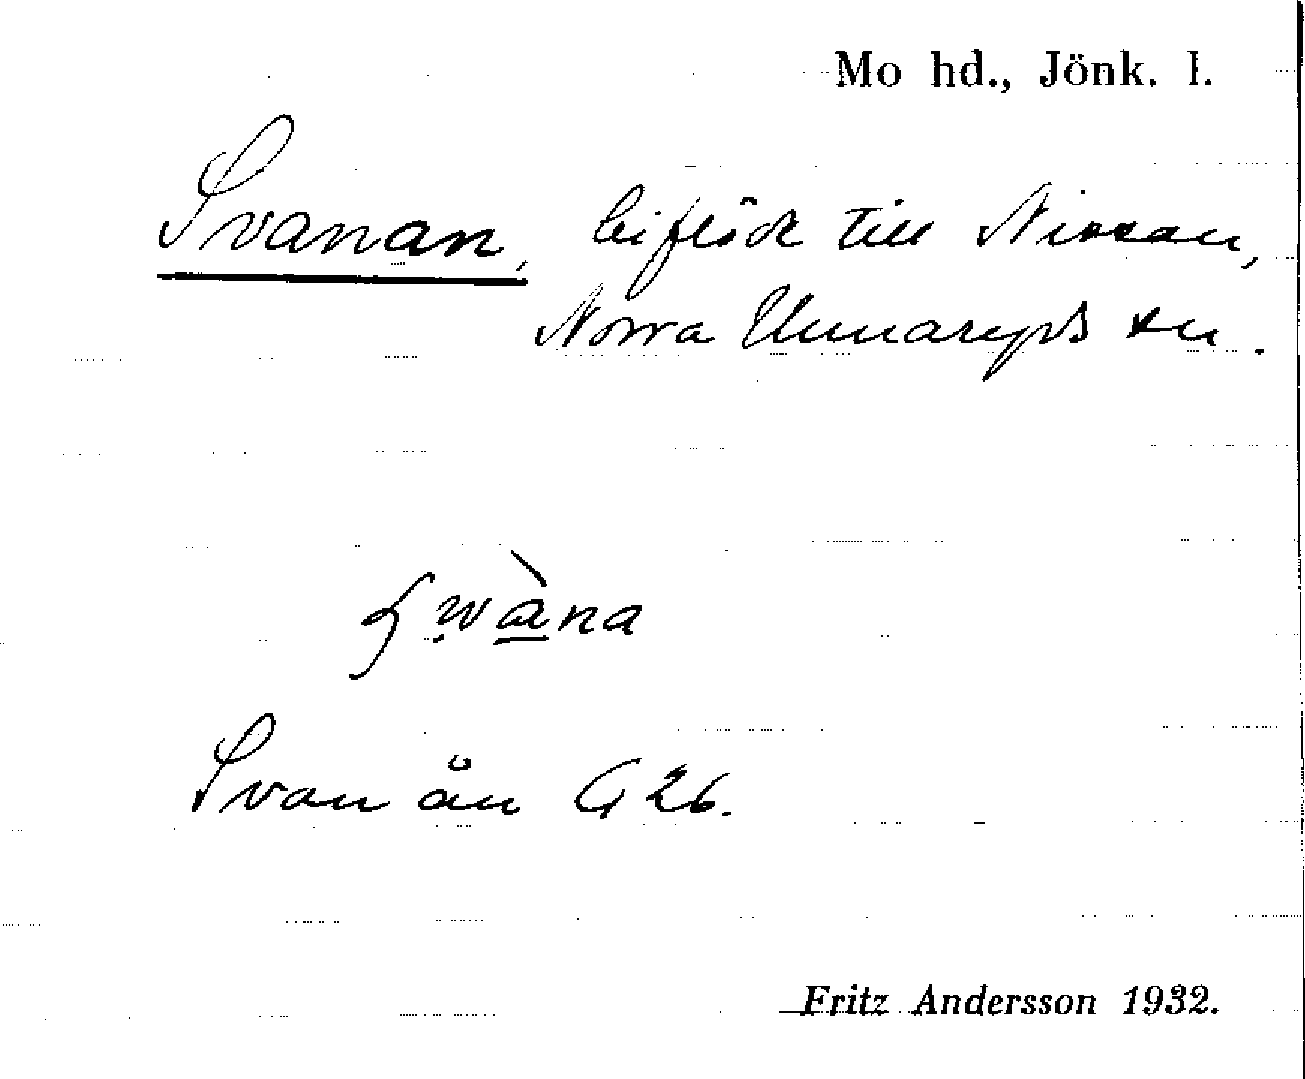 Mo hd., Jönk. l.
Svanan, biflöde till Nissan,
Norra Unnaryds sn.
Svan ån G 26.
Fritz Andersson 1932.